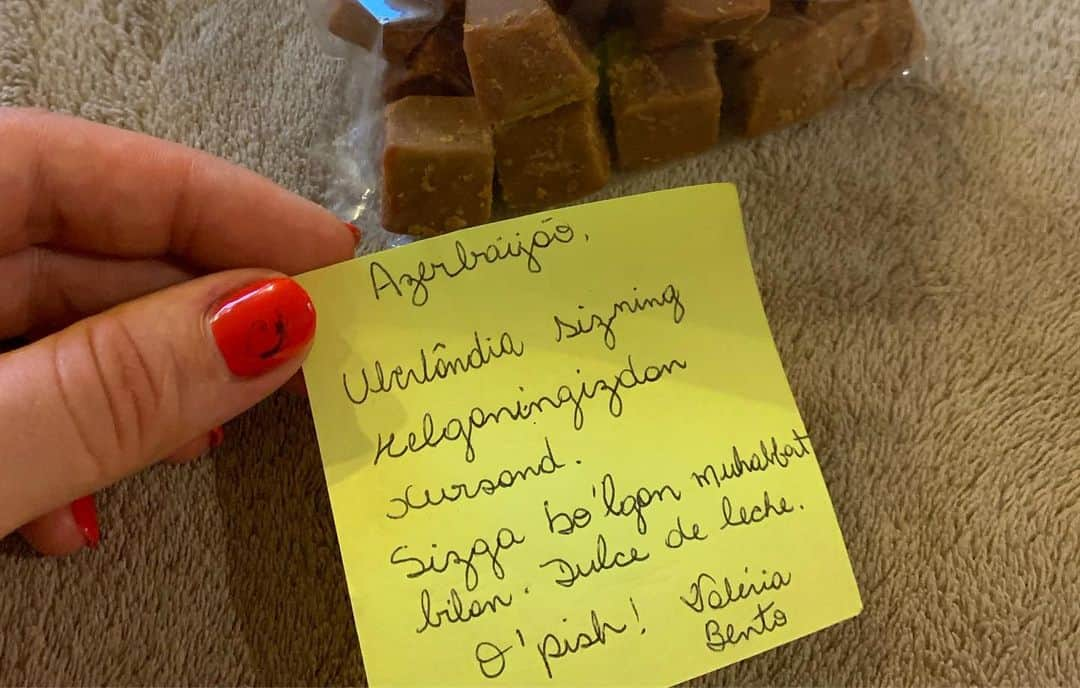 Azerbaijão,
Uberlândia sizning
kelganingizdan
xursand.
Sizga bo'lgan muhabbat
bilan. Dulce de leche.
O'pish! Valéria
Bento